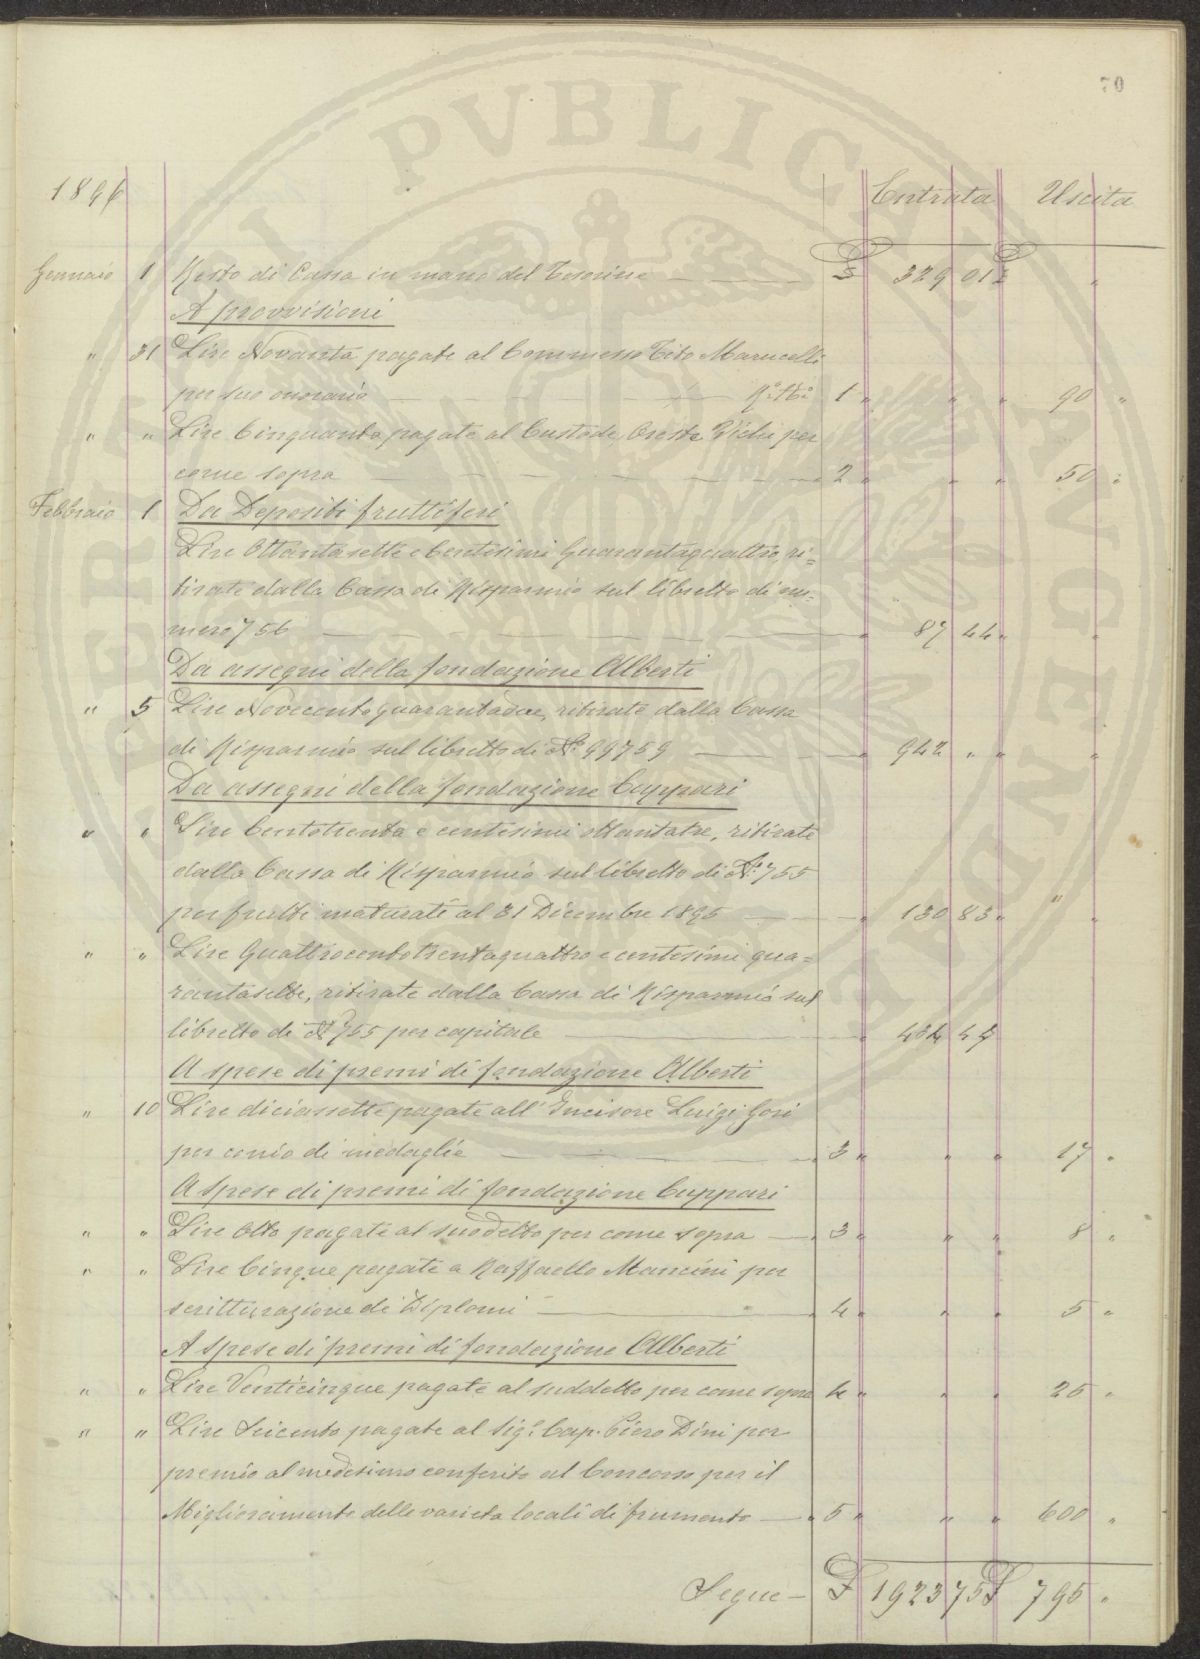 70
PVBLICAE
1896 Entrata Uscita
Gennaio 1 Resto di Cassa in mano del Tesoriere £ 329 01 £ "
A provvisioni
" 31 Lire Novanta pagate al Commesso Tito Marucelli
per suo onorario 1 " " " 90 "
" " Lire Cinquanta pagate al Custode, Oreste per
come sopra 2 " " " 50 "
Febbraio 1 Da Depositi fruttiferi
Lire Ottantasette e Centesimi Quarantaquattro, ri=
tirate dalla Cassa di Risparmio sul libretto di nu=
mero 756 " 87 44 " "
Da assegni della fondazione Alberti
" 5 Lire Novecentoquarantadue, ritirate dalla Cassa
di Risparmio sul libretto di N.º 99759 " 942 " " "
Da assegni della fondazione Cuppari
" " Lire Centotrenta e centesimi ottantatre, ritirate
dalla Cassa di Risparmio sul libretto di N.º 755
per frutti maturati al 31 Dicembre 1895 " 130 83 " " "
" " Lire Quattrocentotrentaquattro e centesimi qua=
rantasette, ritirate dalla Cassa di Risparmio sul
libretto di N.º 755 per capitale " 434 47
A spese di premi di fondazione Alberti
" 10 Lire diciassette pagate all'Incisore Luigi Gori
per conio di medaglie 3 " " " 17 "
A spese di premi di fondazione Cuppari
" " Lire Otto pagate al suddetto per come sopra 3 " " " 8 "
" " Lire Cinque pagate a Raffaello Mancini per
scritturazione di Diplomi 4 " " " 5 "
A spese di premi di fondazione Alberti
" " Lire Venticinque pagate al suddetto per come sopra 4 " " " 25 "
" " Lire Seicento pagate al Sig.r Cap. Piero Dini per
premio al medesimo conferito al Concorso per il
Miglioramento delle varietà locali di frumento 5 " " " 600 "
Segue £ 1923 75 £ 795 "